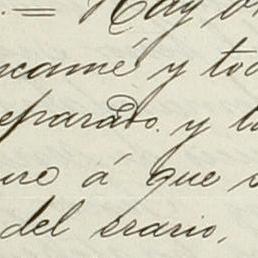 .= Hay
ncamé y tod
eparado y l
uro á que
del erario,